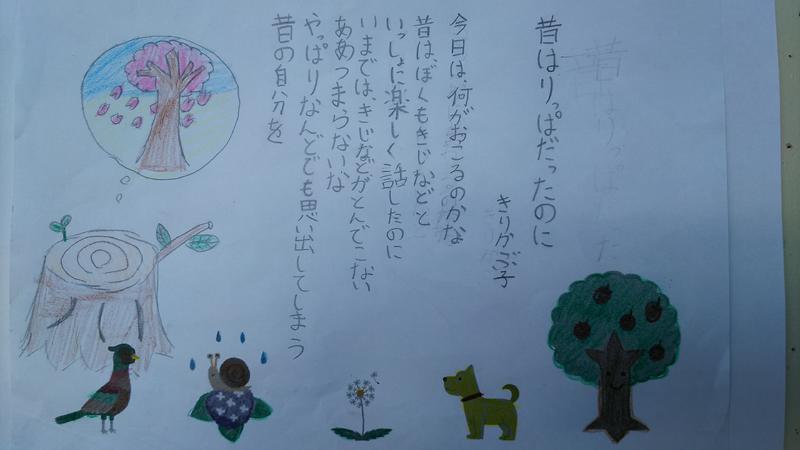 昔はりっぱだったのに
きりかぶ子
今日は、何がおこるのかな
昔は、ぼくもきじなどと
いっしょに楽しく話したのに
いまでは、きじなどがとんでこない
ああつまらないな
やっぱりなんどでも思い出してしまう
昔の自分を